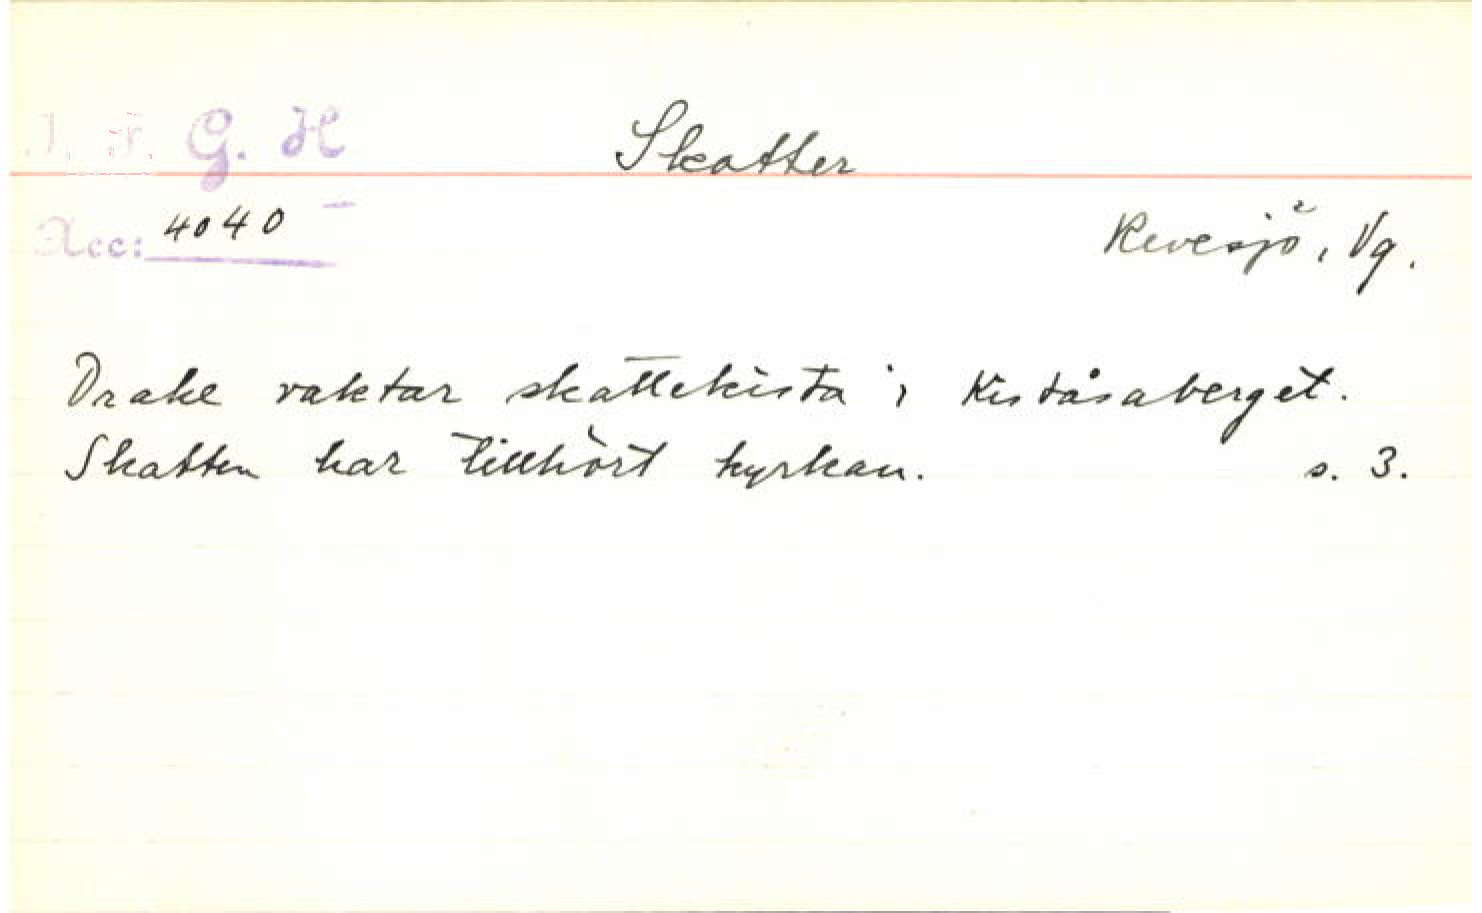 I. F. G. H
Skatter
Acc: 4040
Revesjö, Vg.
Drake vaktar skattekista i Kiståsaberget.
Skatten har tillhört kyrkan. s. 3.